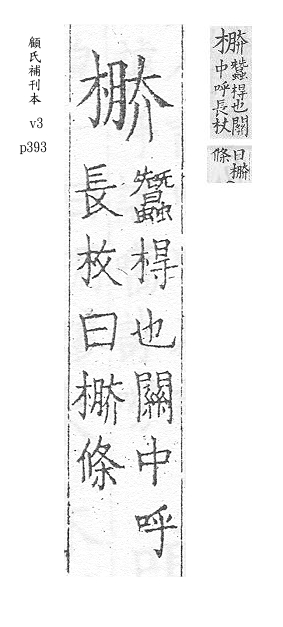 顧氏補刊本
v3
p393
蠶棏也關中呼
長枚曰條
蠶棏也關
中呼長杖
曰
條